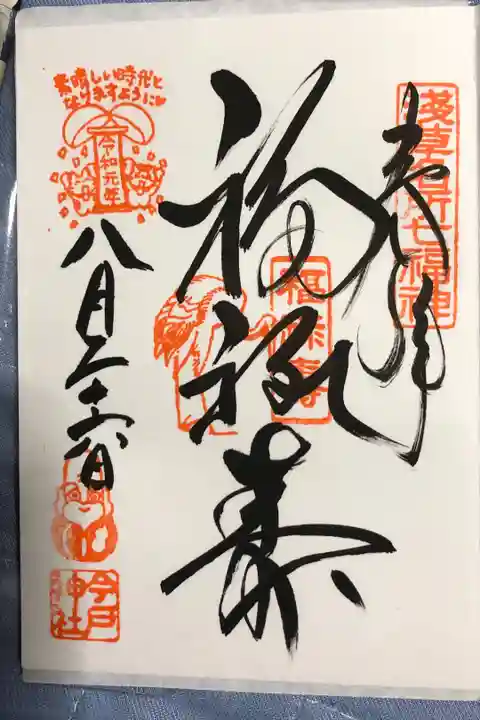 淺草名所七福神
奉拝
福禄寿
福禄寿
素晴しい時代と
なりますように
令和元年
八月二十六日
今戸
神社